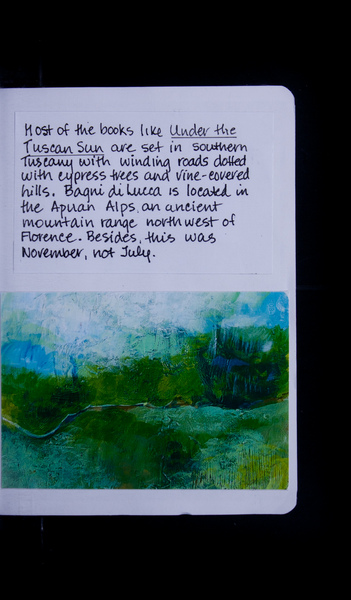 Most of the books like Under the
Tuscan Sun are set in southern
Tuscany with winding roads dotted
with cypress trees and vine-covered
hills. Bagni di Lucca is located in
the Apuan Alps, an ancient
mountain range northwest of
Florence. Besides, this was
November, not July.